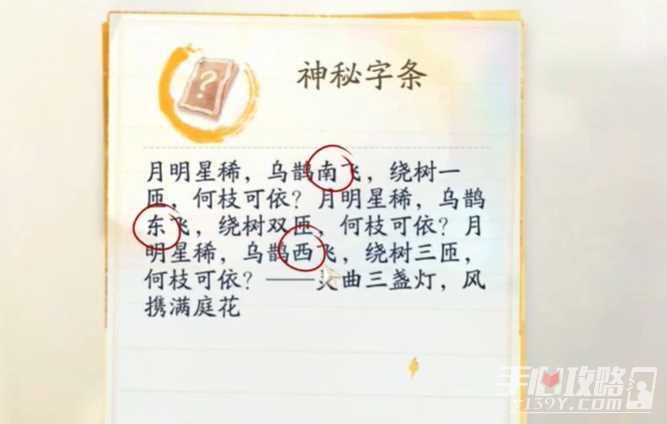 神秘字条
月明星稀，乌鹊南飞，绕树一
匝，何枝可依？月明星稀，乌鹊
东飞，绕树双匝，何枝可依？月
明星稀，乌鹊西飞，绕树三匝，
何枝可依？——关曲三盏灯，风
携满庭花
手心攻略
y139Y.com